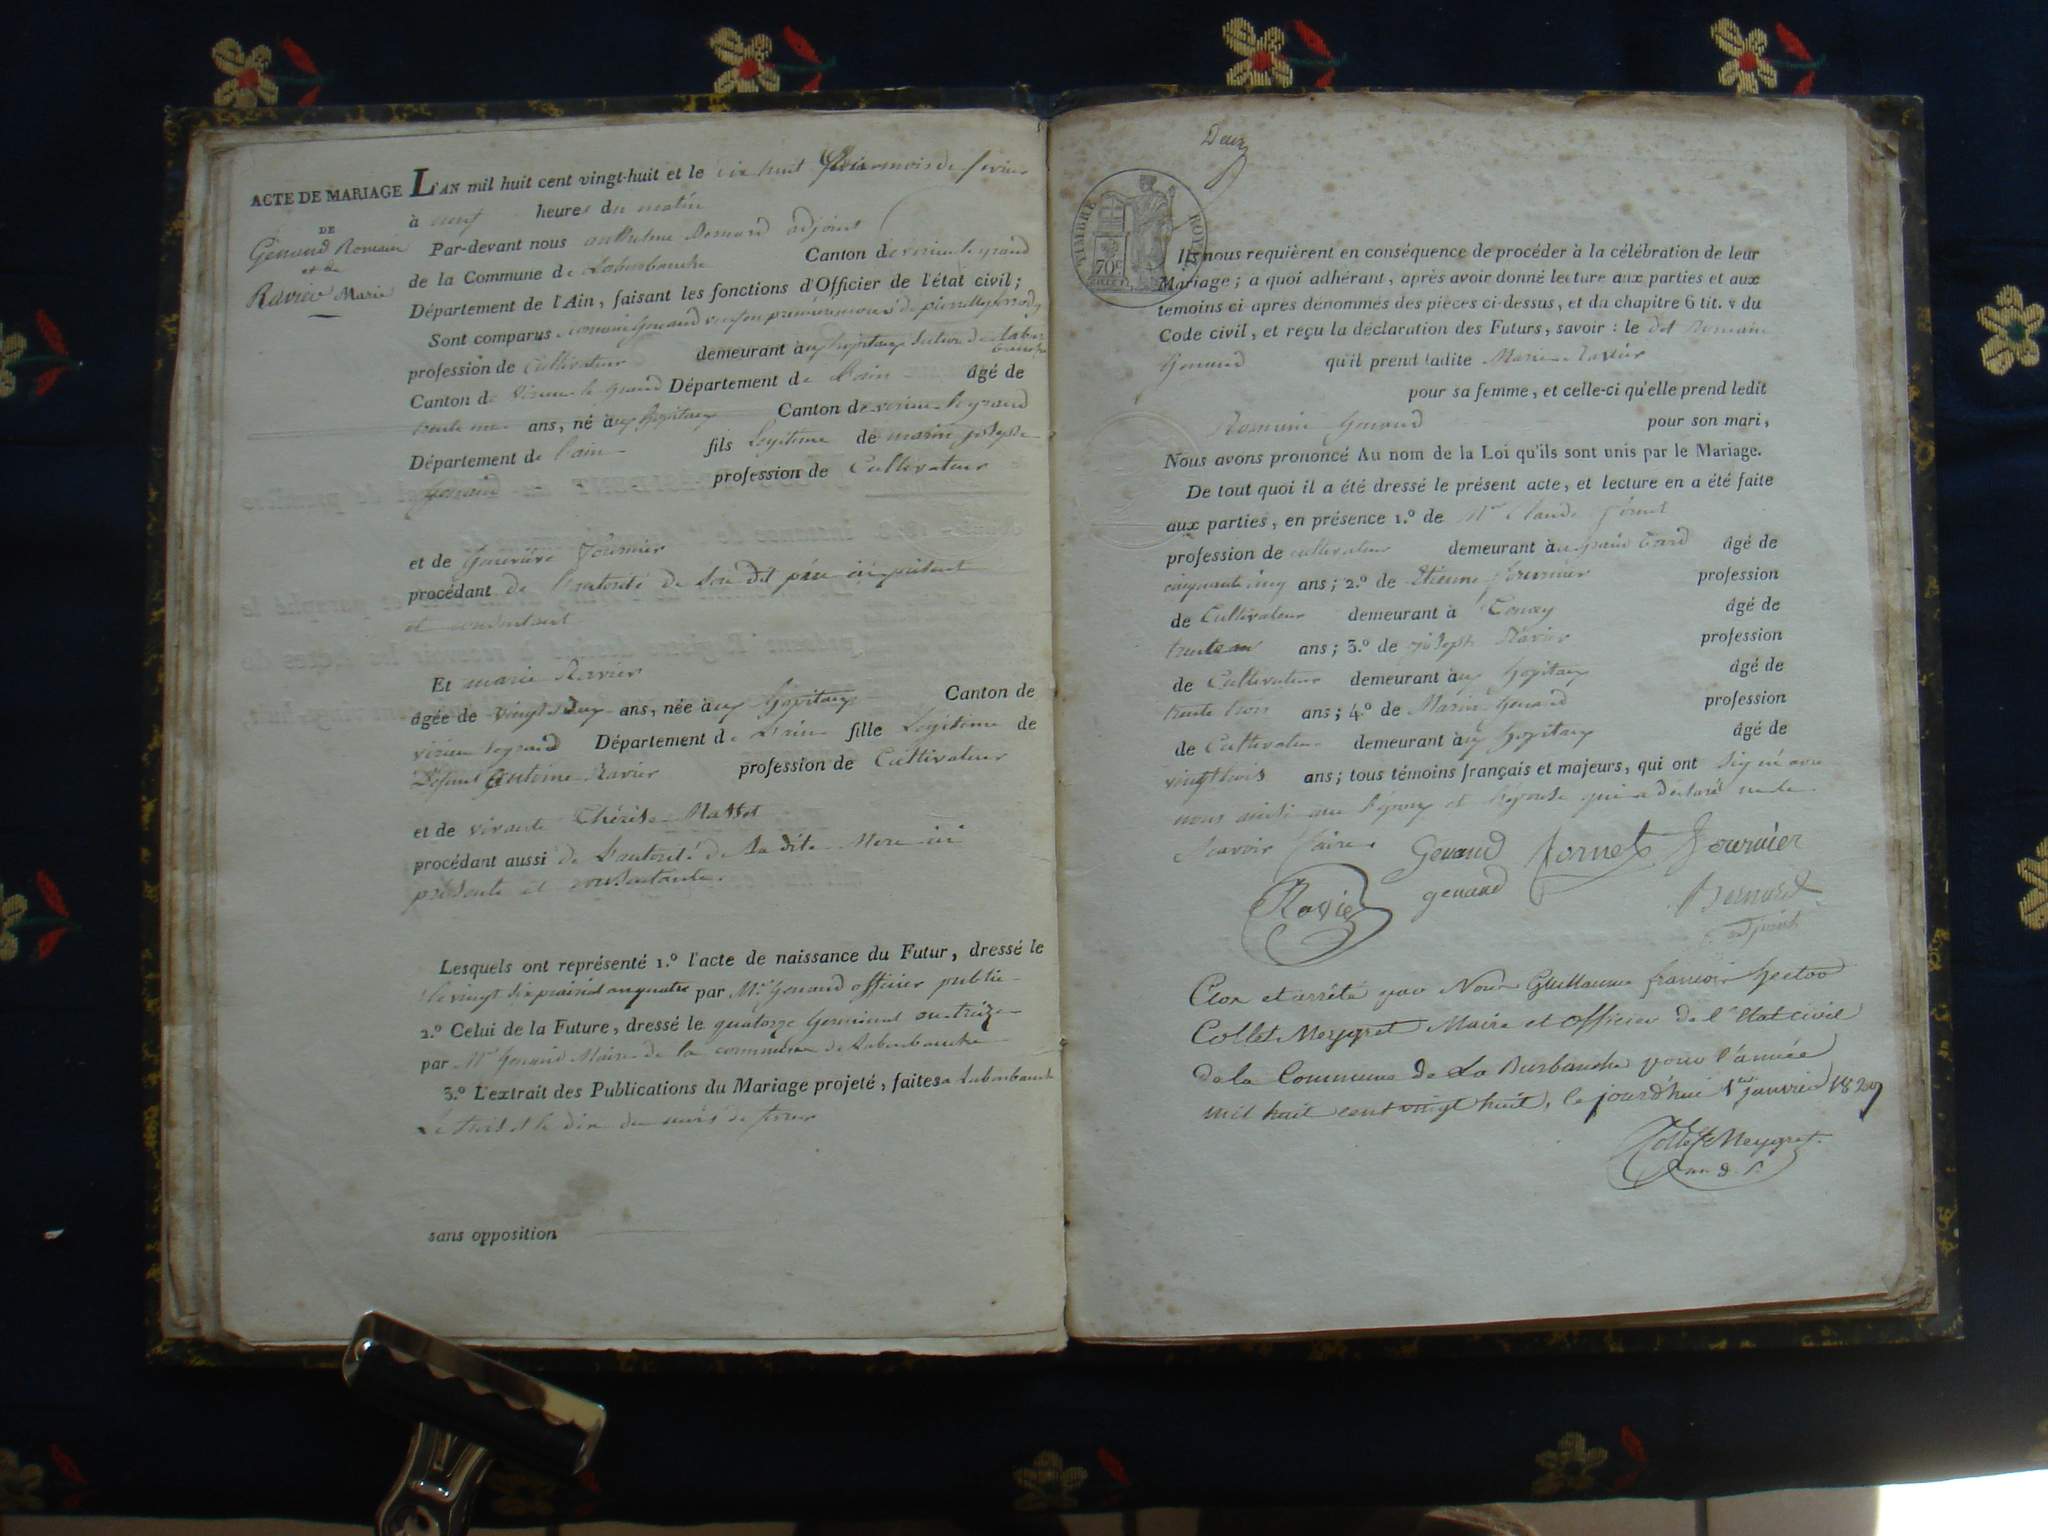 ACTE DE MARIAGE L'AN mil huit cent vingt-huit et le dix huit mois de fevrier
à neuf heures du matin
DE
Genand Romain
et de
Ravier Marie
Par-devant nous anthelme Bernard adjoint
de la Commune de Laburbanche Canton de virieu legrand
Département de l'Ain, faisant les fonctions d'Officier de l'état civil;
Sont comparus romain Genand
profession de Cultivateur demeurant aux hopitaux
Canton de Virieu le grand Département de L'ain âgé de
trente un ans, né aux hopitaux Canton de virieu legrand
Département de L'ain fils Legitime de marin joseph
Genand profession de Cultivateur
et de Genevieve Fournier
procédant de l'autorité de son dit père ici présent
et consentant
Et marie Ravier
âgée de vingt deux ans, née aux hopitaux Canton de
virieu legrand Département de L'ain fille Legitime de
Defunt Antoine Ravier profession de Cultivateur
et de vivante Thérèse Massot
procédant aussi de L'autorité de sa dite Mere ici
présente et consentante.
Lesquels ont représenté 1.º l'acte de naissance du Futur, dressé le
le vingt six prairial an quatre par Mr Genand officier public
2.º Celui de la Future, dressé le quatorze Germinal an treize
par Mr Genand Maire de la commune de Laburbanche
3.º L'extrait des Publications du Mariage projeté, faites a Laburbanche
Le trois et le dix du mois de fevrier
sans opposition
Deux
TIMBRE ROYAL
70c
Ils nous requièrent en conséquence de procéder à la célébration de leur
Mariage; a quoi adhérant, après avoir donné lecture aux parties et aux
témoins ci après dénommés des pièces ci-dessus, et du chapitre 6 tit. v du
Code civil, et reçu la déclaration des Futurs, savoir : le dit Romain
Genand qu'il prend ladite Marie Ravier
pour sa femme, et celle-ci qu'elle prend ledit
Romain Genand pour son mari,
Nous avons prononcé Au nom de la Loi qu'ils sont unis par le Mariage.
De tout quoi il a été dressé le présent acte, et lecture en a été faite
aux parties, en présence 1.º de Mr Claude Jornet
profession de cultivateur demeurant âgé de
cinquante cinq ans; 2.º de Etienne Fournier profession
de Cultivateur demeurant à Tenay âgé de
trente un ans; 3.º de joseph Ravier profession
de Cultivateur demeurant aux hopitaux âgé de
trente trois ans; 4.º de Marin Genand profession
de Cultivateur demeurant aux hopitaux âgé de
vingt trois ans; tous témoins français et majeurs, qui ont signé avec
nous ainsi que l'époux et l'épouse qui a déclaré ne le
Savoir faire.
Genand Jornet Fournier
Ravier genand Bernard
adjoint
Clos et arrêté par Nous Guillaume françois hector
Collet Meygret Maire et officier de l'Etat civil
de la Commune de La Burbanche pour l'année
mil huit cent vingt huit, le jourd'hui 1er janvier 1829
Collet Meygret